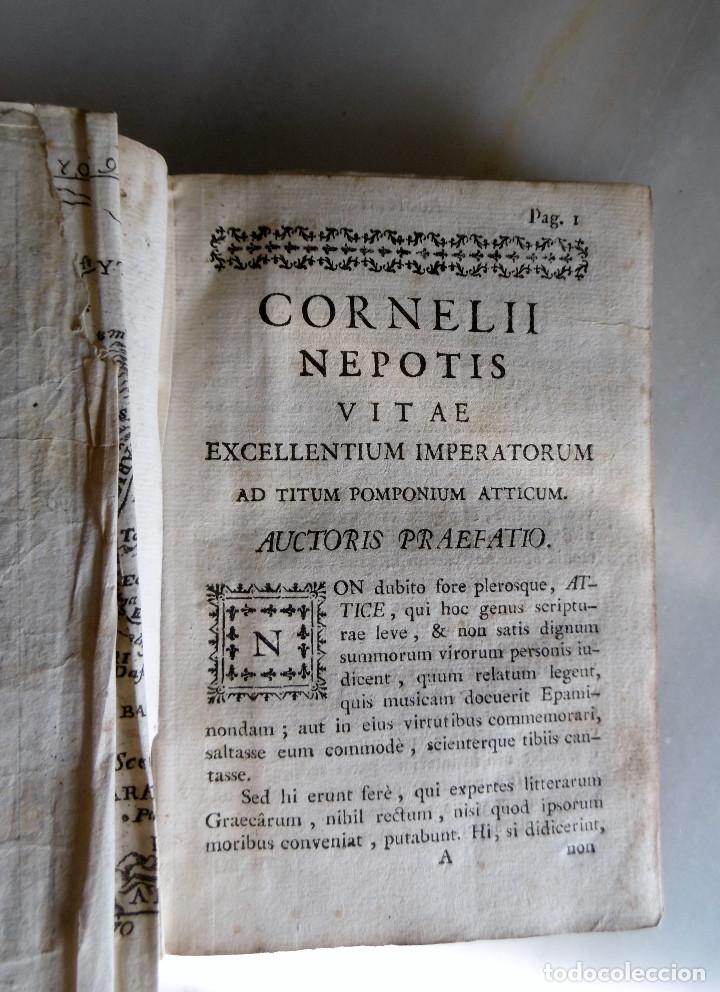 Pag. 1
CORNELII
NEPOTIS
VITAE
EXCELLENTIUM IMPERATORUM
AD TITUM POMPONIUM ATTICUM.
AUCTORIS PRAEFATIO.
NON dubito fore plerosque, AT-
TICE, qui hoc genus scriptu-
rae leve, & non satis dignum
summorum virorum personis iu-
dicent, quum relatum legent,
quis musicam docuerit Epami-
nondam; aut in eius virtutibus commemorari,
saltasse eum commodè, scienterque tibiis can-
tasse.
Sed hi erunt ferè, qui expertes litterarum
Graecârum, nihil rectum, nisi quod ipsorum
moribus conveniat, putabunt. Hi, si didicerint,
A non
todocoleccion